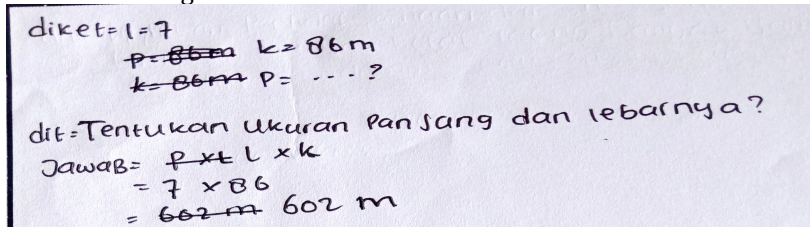 diket= l=7
p=86m k=86m
k=86m P= ....?
dit=Tentukan Ukuran Pansang dan lebarnya?
Jawab= Pxl L x k
= 7 x 86
= 602 m 602 m